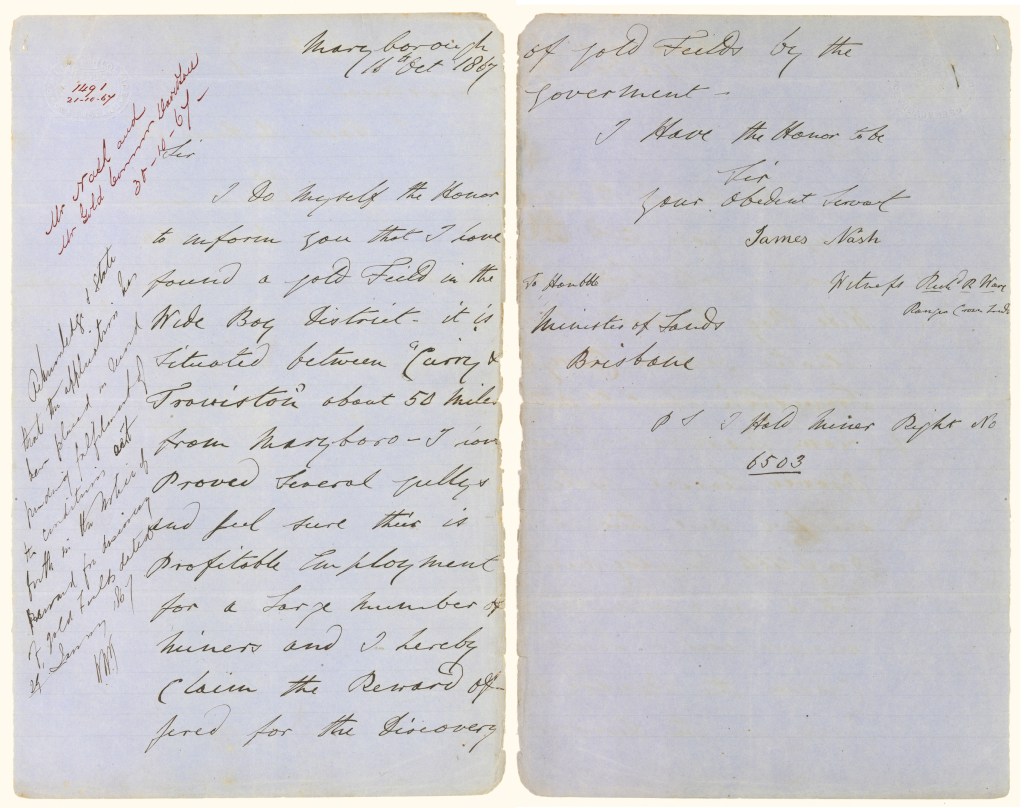 Maryborough
16th Oct 1867
1491
21-10-67
Mr Nash and
Mr Gold Commr Davidson
30-10-67-
Sir
I Do Myself the Honor
to inform you that I have
found a gold Feild in the
Wide Bay District. it is
Situated between "Curry &
Traviston" about 50 Miles
from Maryboro - I have
Proved Several gullys
and feel sure their is
Profitable Employment
for a Large Number of
miners and I hereby
Claim the Reward off-
fered for the Discovery
Acknowledge & State
that the application has
been placed on record
pending fulfilment of
the conditions set
forth in the Notice of
Reward for discovery
of Gold Fields dated
January 1867
of gold Fields by the
goverment -
I Have the Honor to be
Sir
your Obedient Servant
James Nash
To Honble
Minister of Lands
Brisbane
Witness
Ranger Crown Lands
P S I Hold Miner Right No
6503